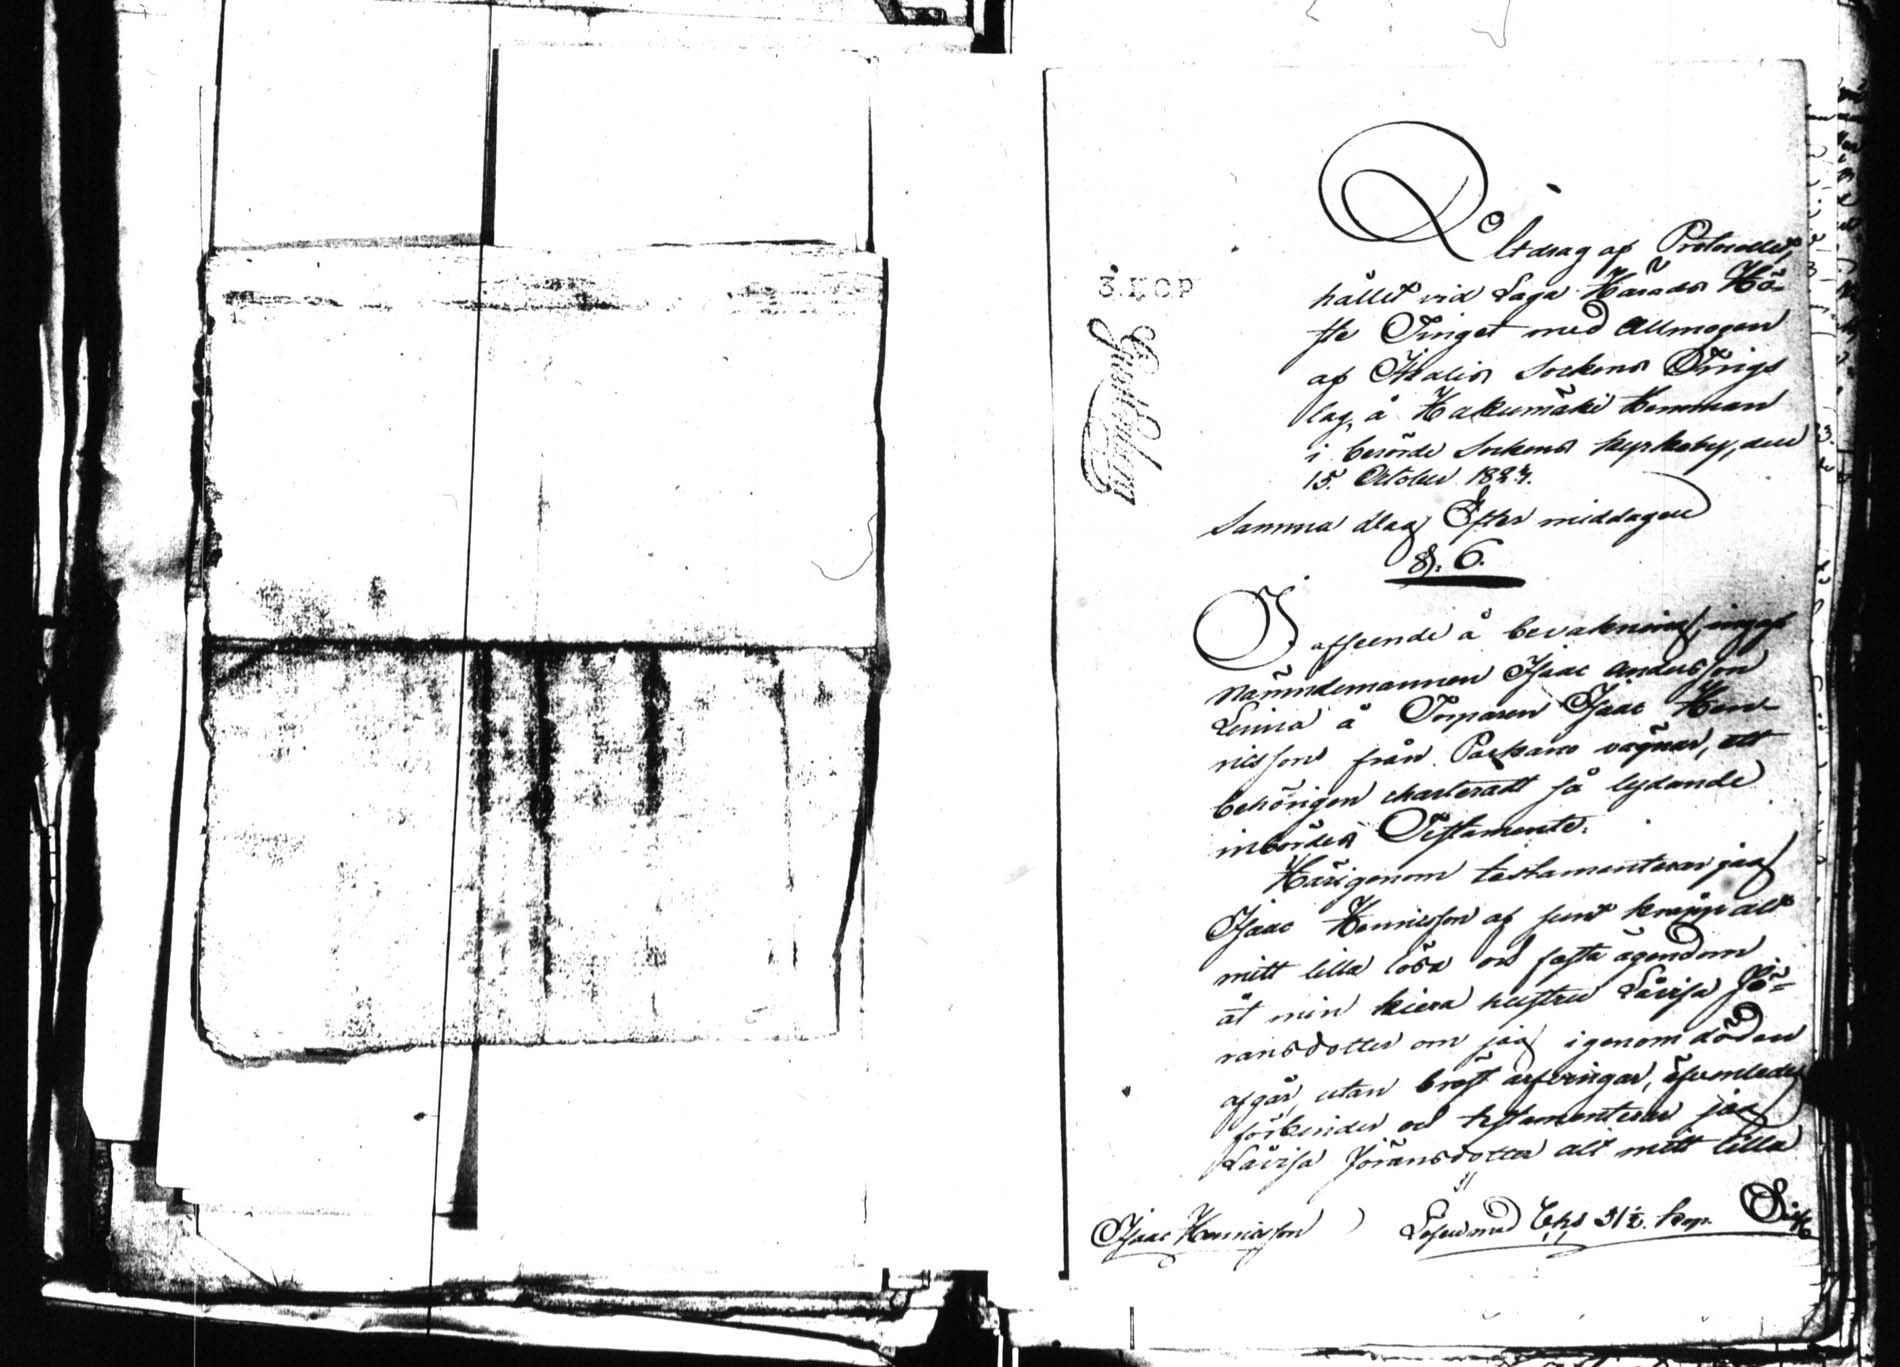 3. KOP
Utdrag af Protocollet,
hållet vid Laga Härads Hö-
ste Tinget med Allmogen
af Ikalis Sockens Tings
lag, å Hakumäki Hemman
i berörde Sockens Kyrkoby, den
15. October 1824.
Samma dag Efter middagen
§. 6.
I afseende å bevakning, ingaf
Nämndemannen Isaac Andersson
Leinia å Torparen Isaac Hen-
ricsson från Parkano vägnar, ett
behörigen charteradt så lydande
inbördes Testamente.
Härigenom testamenterar jag
Isaac Henricsson af sunt alt
mitt lilla lösa oc fasta ägendom
åt min kiera hustru Lovisa Jö-
ransdotter om jag igenom döden
afgår, utan bröst arfvingar, äfvenledes
förbinder oc testamenterar jag
Lovisa Jöransdotter alt mitt lilla
Isaac Henricsson Lösen med 31½ kop.